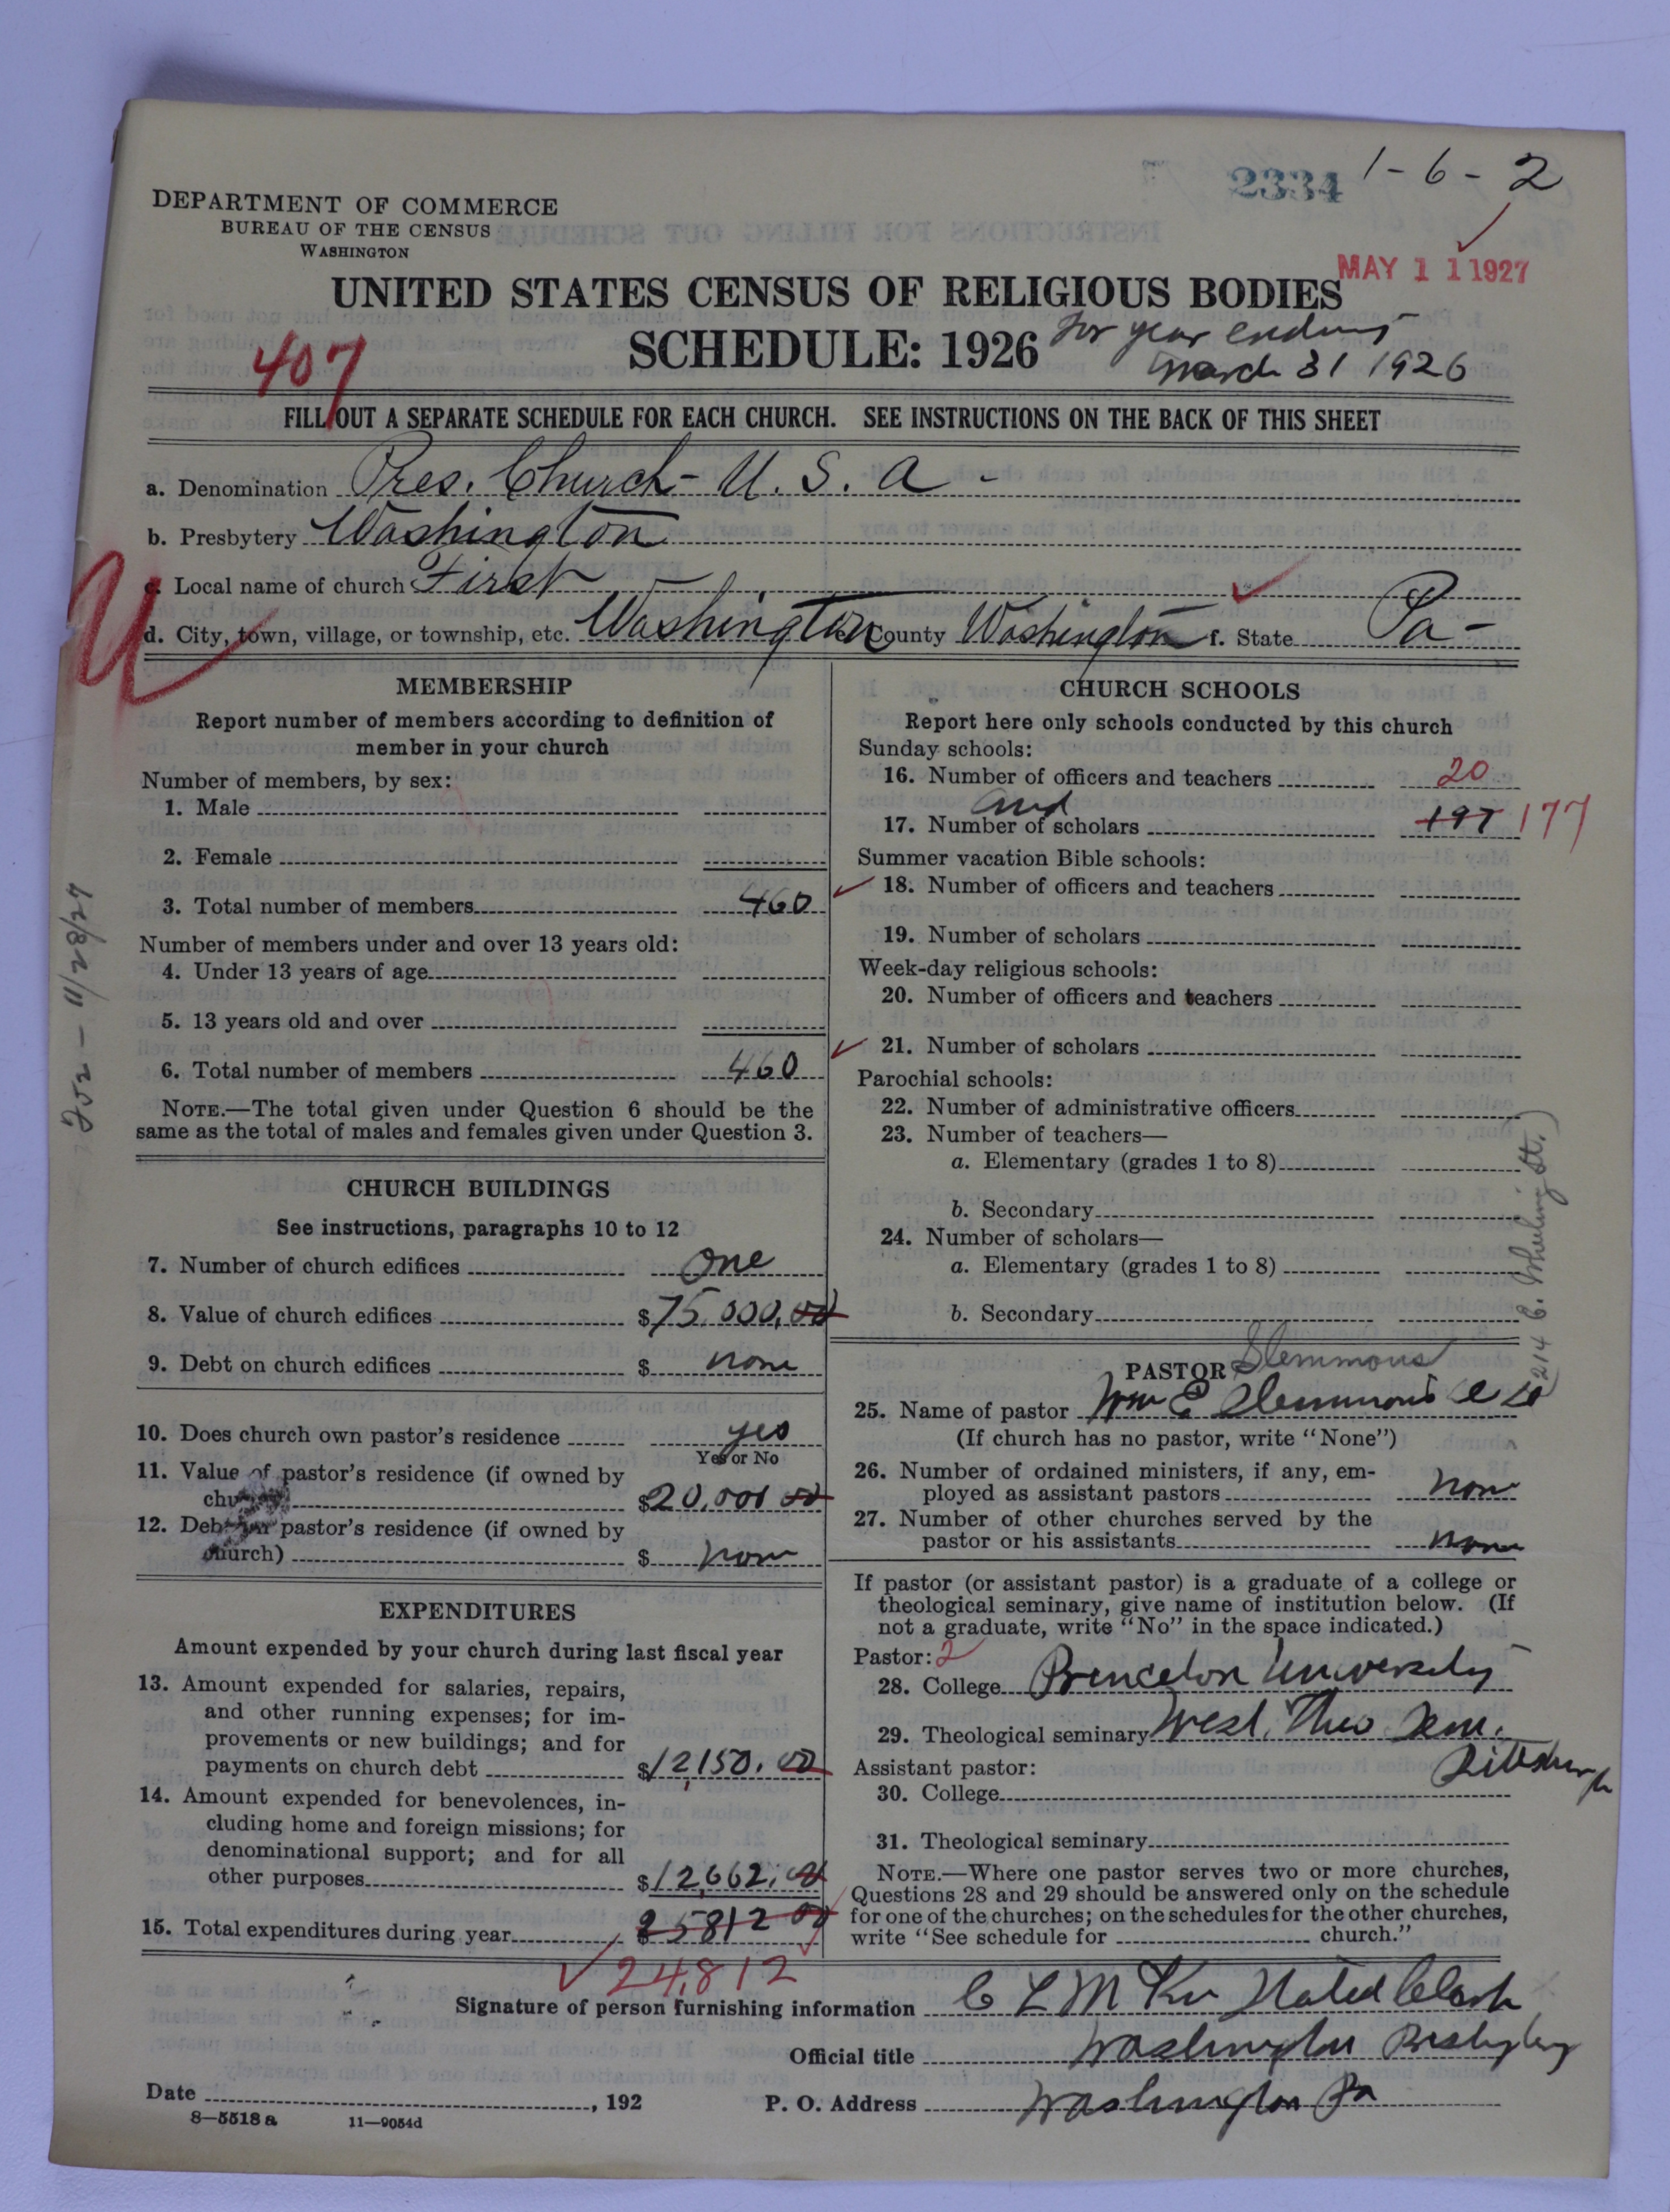 2334 1-6-2
DEPARTMENT OF COMMERCE
BUREAU OF THE CENSUS
WASHINGTON
MAY 11 1927
UNITED STATES CENSUS OF RELIGIOUS BODIES
SCHEDULE: 1926 for year ending
March 31 1926
407
FILL OUT A SEPARATE SCHEDULE FOR EACH CHURCH. SEE INSTRUCTIONS ON THE BACK OF THIS SHEET
a. Denomination Pres. Church - U. S. A -
b. Presbytery Washington
c. Local name of church First
d. City, town, village, or township, etc. Washington County Washington f. State Pa-
U
MEMBERSHIP
Report number of members according to definition of
member in your church
Number of members, by sex:
1. Male
2. Female
3. Total number of members 460
Number of members under and over 13 years old:
4. Under 13 years of age
5. 13 years old and over
6. Total number of members 460
NOTE.—The total given under Question 6 should be the
same as the total of males and females given under Question 3.
CHURCH BUILDINGS
See instructions, paragraphs 10 to 12
7. Number of church edifices one
8. Value of church edifices $75.000.00
9. Debt on church edifices $ none
10. Does church own pastor's residence yes
Yes or No
11. Value of pastor's residence (if owned by
church) $20,000 00
12. Debt on pastor's residence (if owned by
church) $ none
EXPENDITURES
Amount expended by your church during last fiscal year
13. Amount expended for salaries, repairs,
and other running expenses; for im-
provements or new buildings; and for
payments on church debt $12,150.00
14. Amount expended for benevolences, in-
cluding home and foreign missions; for
denominational support; and for all
other purposes $12,662.00
15. Total expenditures during year $25812 00
24,812
CHURCH SCHOOLS
Report here only schools conducted by this church
Sunday schools:
16. Number of officers and teachers 20
and
17. Number of scholars 197 177
Summer vacation Bible schools:
18. Number of officers and teachers
19. Number of scholars
Week-day religious schools:
20. Number of officers and teachers
21. Number of scholars
Parochial schools:
22. Number of administrative officers
23. Number of teachers—
a. Elementary (grades 1 to 8)
b. Secondary
24. Number of scholars—
a. Elementary (grades 1 to 8)
b. Secondary
214 E. Wheeling St.)
PASTOR Slemmons
25. Name of pastor Wm E Slemmons
(If church has no pastor, write "None")
26. Number of ordained ministers, if any, em-
ployed as assistant pastors none
27. Number of other churches served by the
pastor or his assistants none
If pastor (or assistant pastor) is a graduate of a college or
theological seminary, give name of institution below. (If
not a graduate, write "No" in the space indicated.)
Pastor: 2
28. College Princeton University
29. Theological seminary West. Theo Sem.
Pittsburgh
Assistant pastor:
30. College
31. Theological seminary
NOTE.—Where one pastor serves two or more churches,
Questions 28 and 29 should be answered only on the schedule
for one of the churches; on the schedules for the other churches,
write "See schedule for church."
Signature of person furnishing information C L M Stated Clerk
Official title Washington Presbytery
Date , 192 P. O. Address Washington Pa
8—5518 a 11—9054d
11/28/27